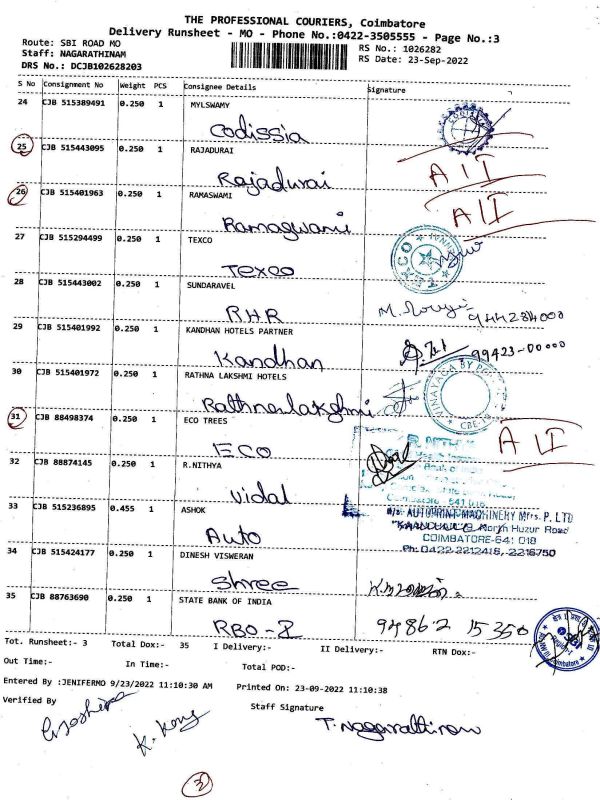 THE PROFESSIONAL COURIERS, Coimbatore
Delivery Runsheet - MO - Phone No.:0422-3505555 - Page No.:3
Route: SBI ROAD MO
RS No.: 1026282
Staff: NAGARATHINAM
RS Date: 23-Sep-2022
DRS No.: DCJB102628203
S No Consignment No Weight PCS Consignee Details Signature
24 CJB 515389491 0.250 1 MYLSWAMY
Codissia
25 CJB 515443095 0.250 1 RAJADURAI
Rajadurai
A II
26 CJB 515401963 0.250 1 RAMASWAMI
Ramaswami
A II
27 CJB 515294499 0.250 1 TEXCO
Texco
TEXCO
28 CJB 515443002 0.250 1 SUNDARAVEL
RHR
944284000
29 CJB 515401992 0.250 1 KANDHAN HOTELS PARTNER
Kandhan
99423-00000
30 CJB 515401972 0.250 1 RATHNA LAKSHMI HOTELS
Rathnalakshmi
31 CJB 88498374 0.250 1 ECO TREES
ECO
A II
32 CJB 88874145 0.250 1 R.NITHYA
Vidal
33 CJB 515236895 0.455 1 ASHOK
Auto
M/s. AUTOPRINT MACHINERY Mfrs. P. LTD
North Huzur Road
COIMBATORE-641 018
Ph: 0422 2212416, 2216750
34 CJB 515424177 0.250 1 DINESH VISWERAN
Shree
35 CJB 88763690 0.250 1 STATE BANK OF INDIA
RBO-2
94862 15350
SBI
Tot. Runsheet:- 3 Total Dox:- 35 I Delivery:- II Delivery:- RTN Dox:-
Out Time:- In Time:- Total POD:-
Entered By :JENIFERMO 9/23/2022 11:10:30 AM Printed On: 23-09-2022 11:10:38
Verified By Staff Signature
T. Nagarathinam
3